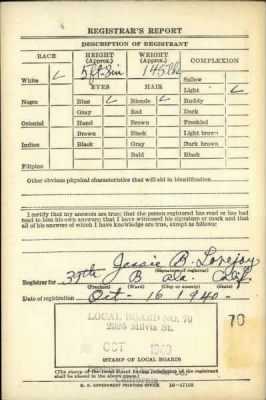 REGISTRAR'S REPORT
DESCRIPTION OF REGISTRANT
RACE HEIGHT (Approx.) WEIGHT (Approx.) COMPLEXION
White ✓ 5 ft. 8 in 145 lbs Sallow
EYES HAIR Light ✓
Negro Blue ✓ Blonde ✓ Ruddy
Gray Red Dark
Oriental Hazel Brown Freckled
Brown Black Light brown
Indian Black Gray Dark brown
Bald Black
Filipino
Other obvious physical characteristics that will aid in identification
I certify that my answers are true; that the person registered has read or has had
read to him his own answers; that I have witnessed his signature or mark and that
all of his answers of which I have knowledge are true, except as follows:
Jessie B. Lovejoy
(Signature of registrar)
Registrar for 37th B Ala. Calif.
(Precinct) (Ward) (City or county) (State)
Date of registration Oct - 16 1940 -
LOCAL BOARD NO. 70
2225 Milvia St.
70
OCT 1940
STAMP OF LOCAL BOARD
(The stamp of the Local Board having jurisdiction of the registrant
shall be placed in the above space.)
California
U. S. GOVERNMENT PRINTING OFFICE 16-17105